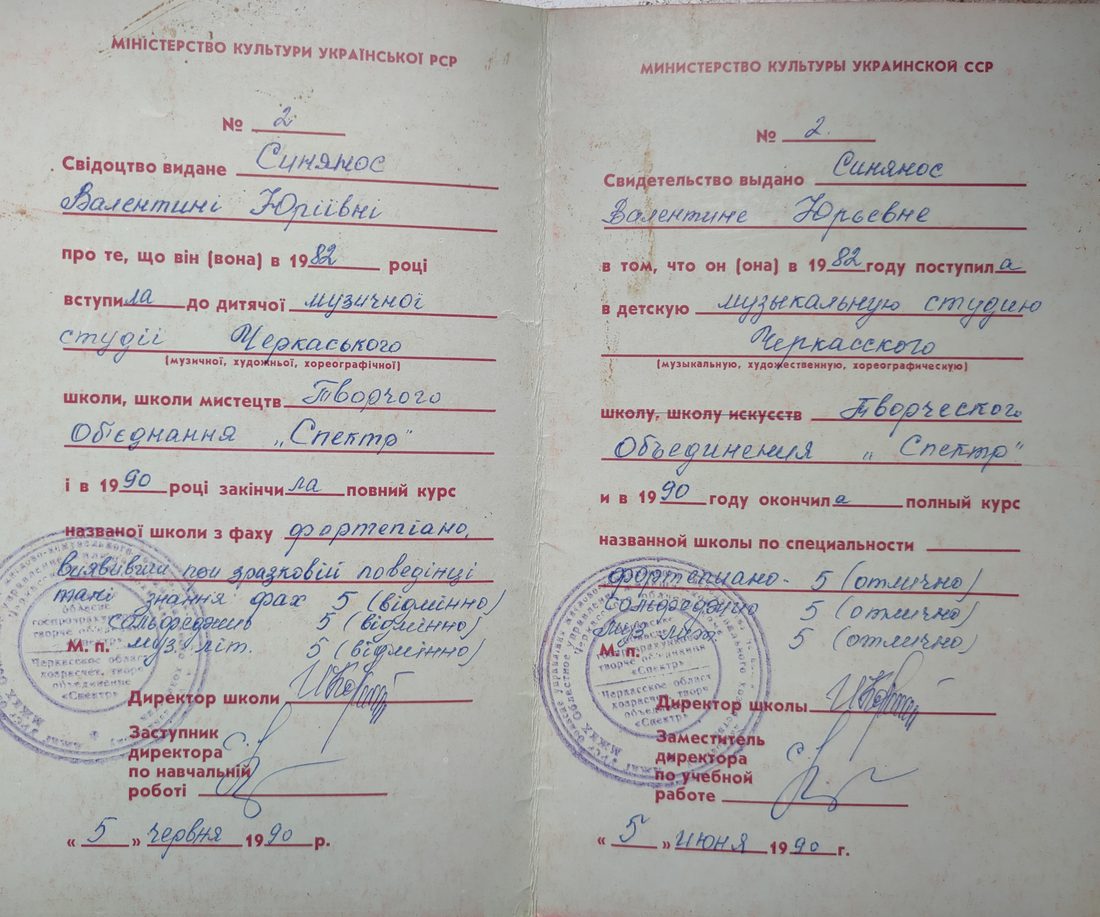 МІНІСТЕРСТВО КУЛЬТУРИ УКРАЇНСЬКОЇ РСР
№ 2
Свідоцтво видане Синянос
Валентині Юріївні
про те, що він (вона) в 1982 році
вступила до дитячої музичної
студії Черкаського
(музичної, художньої, хореографічної)
школи, школи мистецтв Творчого
Об'єднання „Спектр"
і в 1990 році закінчила повний курс
названої школи з фаху фортепіано,
виявивши при зразковій поведінці
такі знання фах 5 (відмінно)
сольфеджио 5 (відмінно)
М. п. муз. літ. 5 (відмінно)
Директор школи
Заступник
директора
по навчальній
роботі
« 5 » червня 1990 р.
МИНИСТЕРСТВО КУЛЬТУРЫ УКРАИНСКОЙ ССР
№ 2.
Свидетельство выдано Синянос
Валентине Юрьевне
в том, что он (она) в 1982 году поступила
в детскую музыкальную студию
Черкасского
(музыкальную, художественную, хореографическую)
школу, школу искусств Творческого
Объединения „Спектр"
и в 1990 году окончила полный курс
названной школы по специальности
фортепиано - 5 (отлично)
Сольфеджио 5 (отлично)
Муз. лит. 5 (отлично)
М. п.
Директор школы
Заместитель
директора
по учебной
работе
« 5 » июня 1990 г.
творче
«Спектр»
Черкасское област
хозрасчет. творч
объединение
«Спектр»